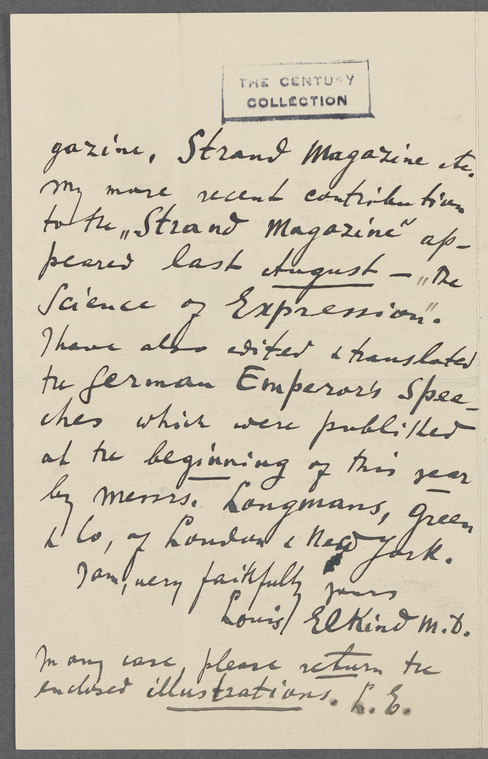 THE CENTURY
COLLECTION
gazine, Strand Magazine etc.
My more recent contribution
to the „Strand Magazine" ap-
peared last August – "The
Science of Expression".
I have also edited & translated
the German Emperor's Spee-
ches which were published
at the beginning of this year
by Messrs. Longmans, Green
& Co, of London & New York.
I am, very faithfully yours
Louis Elkind M.D.
In any case please return the
enclosed illustrations. L. E.